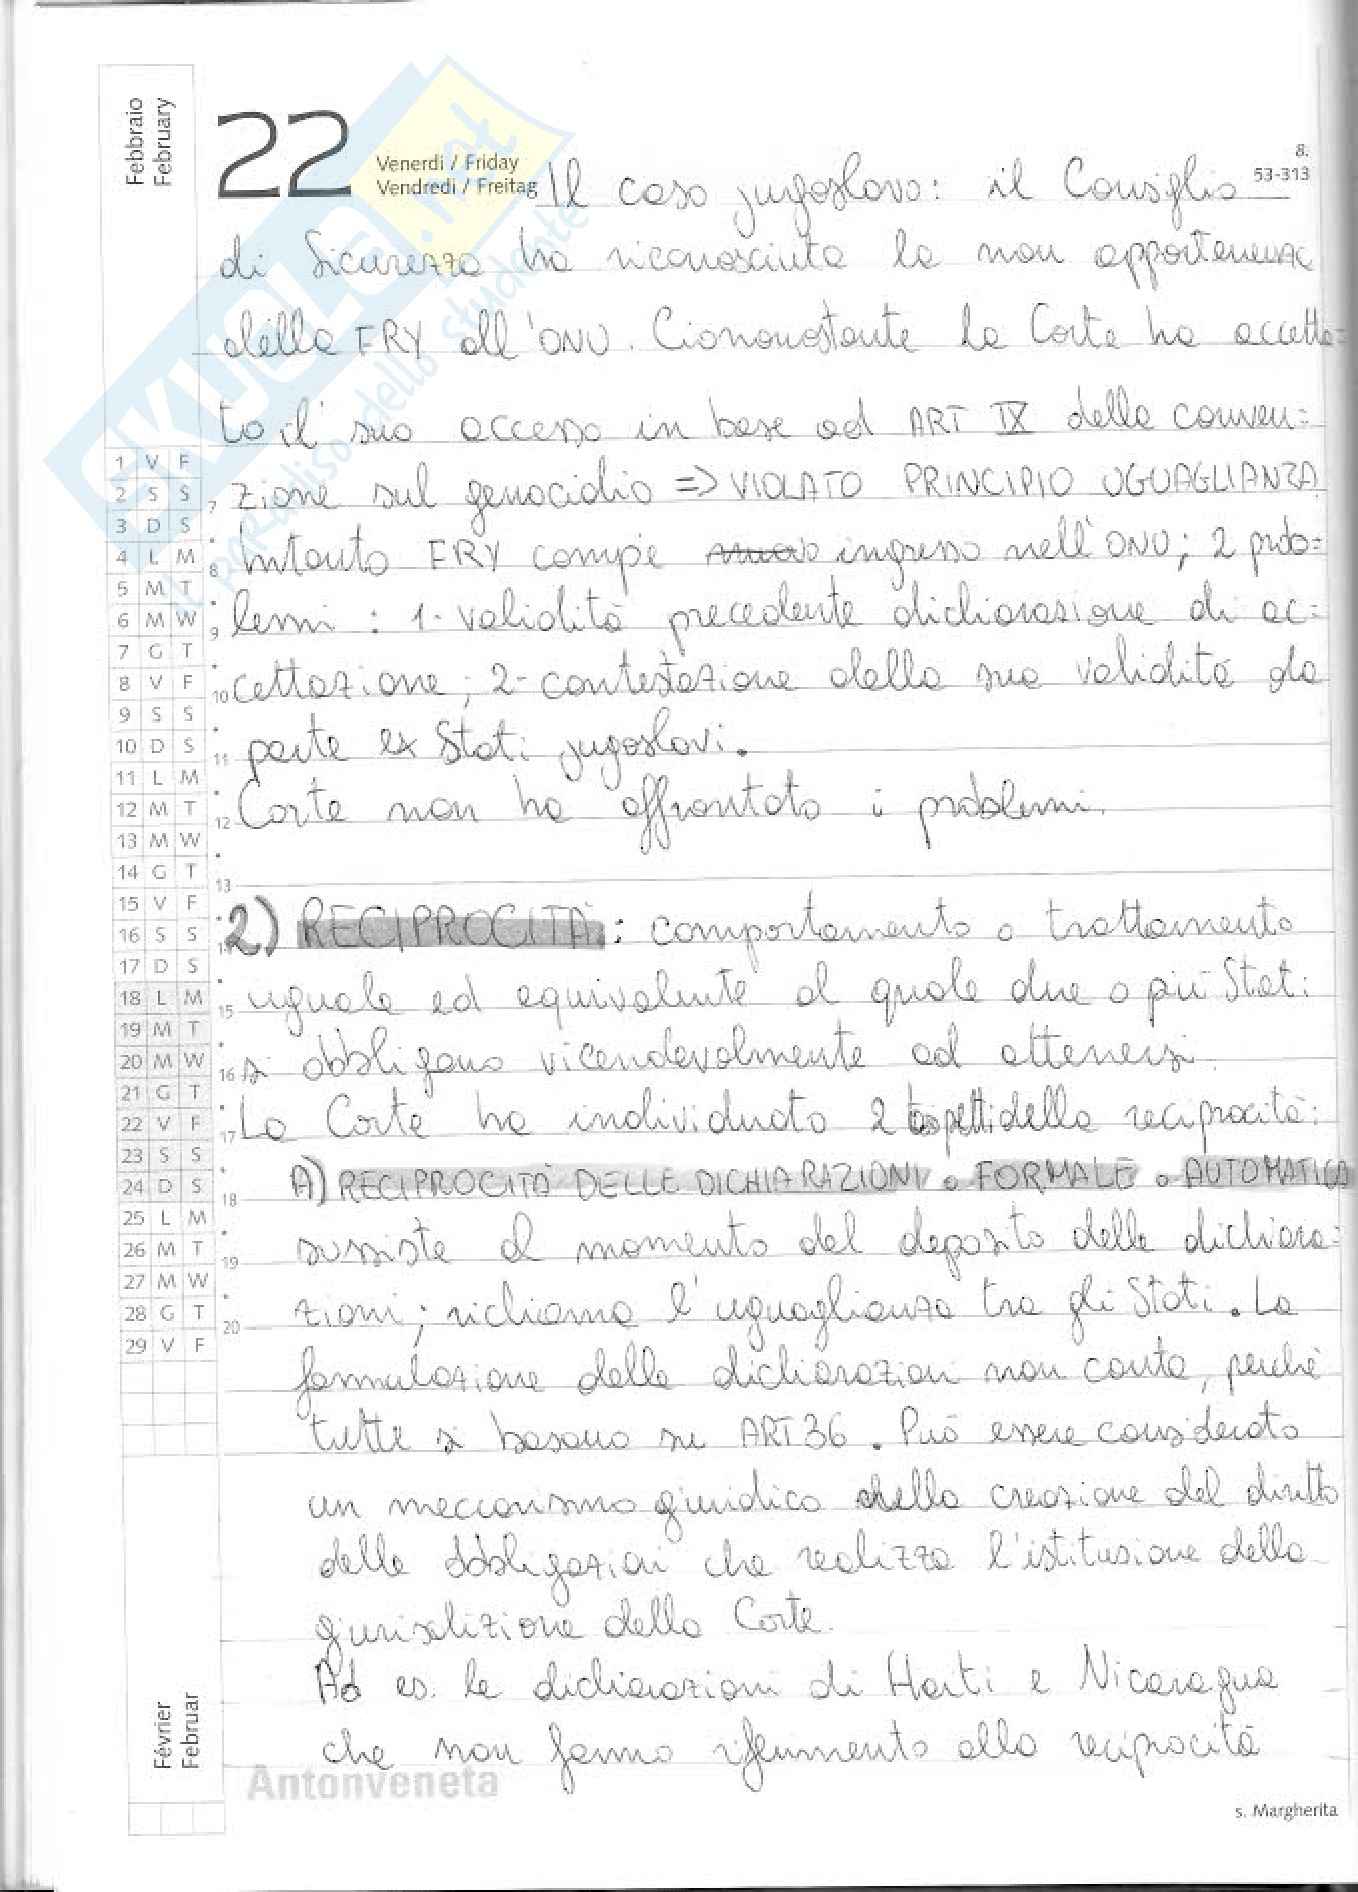 Febbraio
February
22
Venerdì / Friday
Vendredi / Freitag
8.
53-313
SKUOLA.net
il paradiso dello studente
Il caso jugoslavo: il Consiglio
di Sicurezza ha riconosciuto la non appartenenza
della FRY all'ONU. Ciononostante la Corte ha accetta=
to il suo accesso in base ad ART IX della conven=
zione sul genocidio => VIOLATO PRINCIPIO UGUAGLIANZA
Intanto FRY compie ingresso nell'ONU; 2 prob=
lemi: 1- validità precedente dichiarazione di ac=
cettazione; 2- contestazione della sua validità da
parte ex Stati jugoslavi.
Corte non ha affrontato i problemi.
2) RECIPROCITÀ: comportamento o trattamento
uguale ed equivalente al quale due o più Stati
si obbligano vicendevolmente ad attenersi.
La Corte ha individuato 2 aspetti della reciprocità:
A) RECIPROCITÀ DELLE DICHIARAZIONI o FORMALE o AUTOMATICA
sussiste al momento del deposito delle dichiara=
zioni; richiama l'uguaglianza tra gli Stati. La
formulazione delle dichiarazioni non conta, perché
tutte si basano su ART 36. Può essere considerato
un meccanismo giuridico della creazione del diritto
delle obbligazioni che realizza l'istituzione della
giurisdizione della Corte.
Ad es. le dichiarazioni di Haiti e Nicaragua
che non fanno riferimento alla reciprocità
1 V F
2 S S
3 D S
4 L M
5 M T
6 M W
7 G T
8 V F
9 S S
10 D S
11 L M
12 M T
13 M W
14 G T
15 V F
16 S S
17 D S
18 L M
19 M T
20 M W
21 G T
22 V F
23 S S
24 D S
25 L M
26 M T
27 M W
28 G T
29 V F
7
8
9
10
11
12
13
14
15
16
17
18
19
20
Février
Februar
Antonveneta
s. Margherita